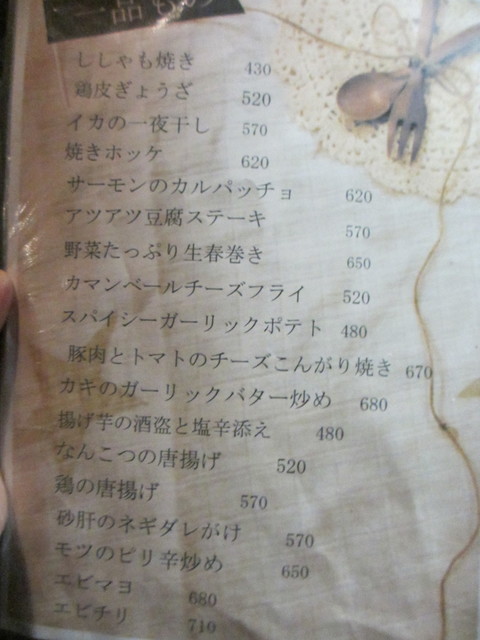 一品もの
ししゃも焼き 430
鶏皮ぎょうざ 520
イカの一夜干し 570
焼きホッケ 620
サーモンのカルパッチョ 620
アツアツ豆腐ステーキ 570
野菜たっぷり生春巻き 650
カマンベールチーズフライ 520
スパイシーガーリックポテト 480
豚肉とトマトのチーズこんがり焼き 670
カキのガーリックバター炒め 680
揚げ芋の酒盗と塩辛添え 480
なんこつの唐揚げ 520
鶏の唐揚げ 570
砂肝のネギダレがけ 570
モツのピリ辛炒め 650
エビマヨ 680
エビチリ 710